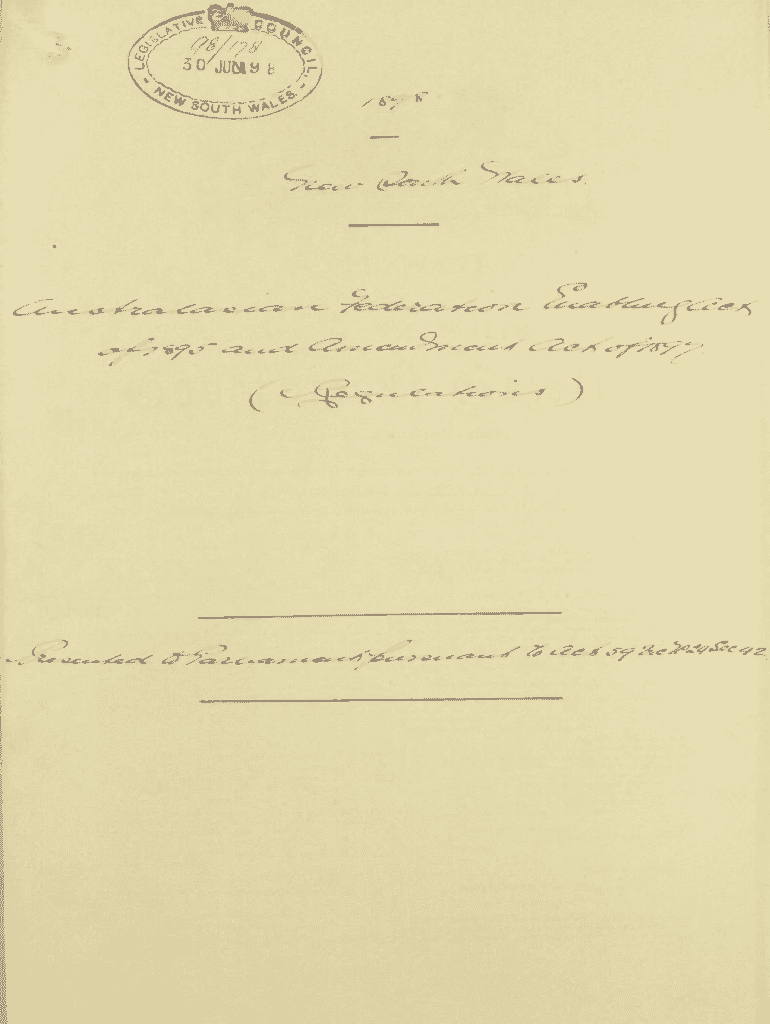 LEGISLATIVE COUNCIL,
98/178
30 JUN 98
NEW SOUTH WALES.
1898
New South Wales.
Australasian Federation Enabling Act
of 1895 and Amendment Act of 1897
(Regulations)
Presented to Parliament pursuant to Act 59 Vic No 24 Sec 42